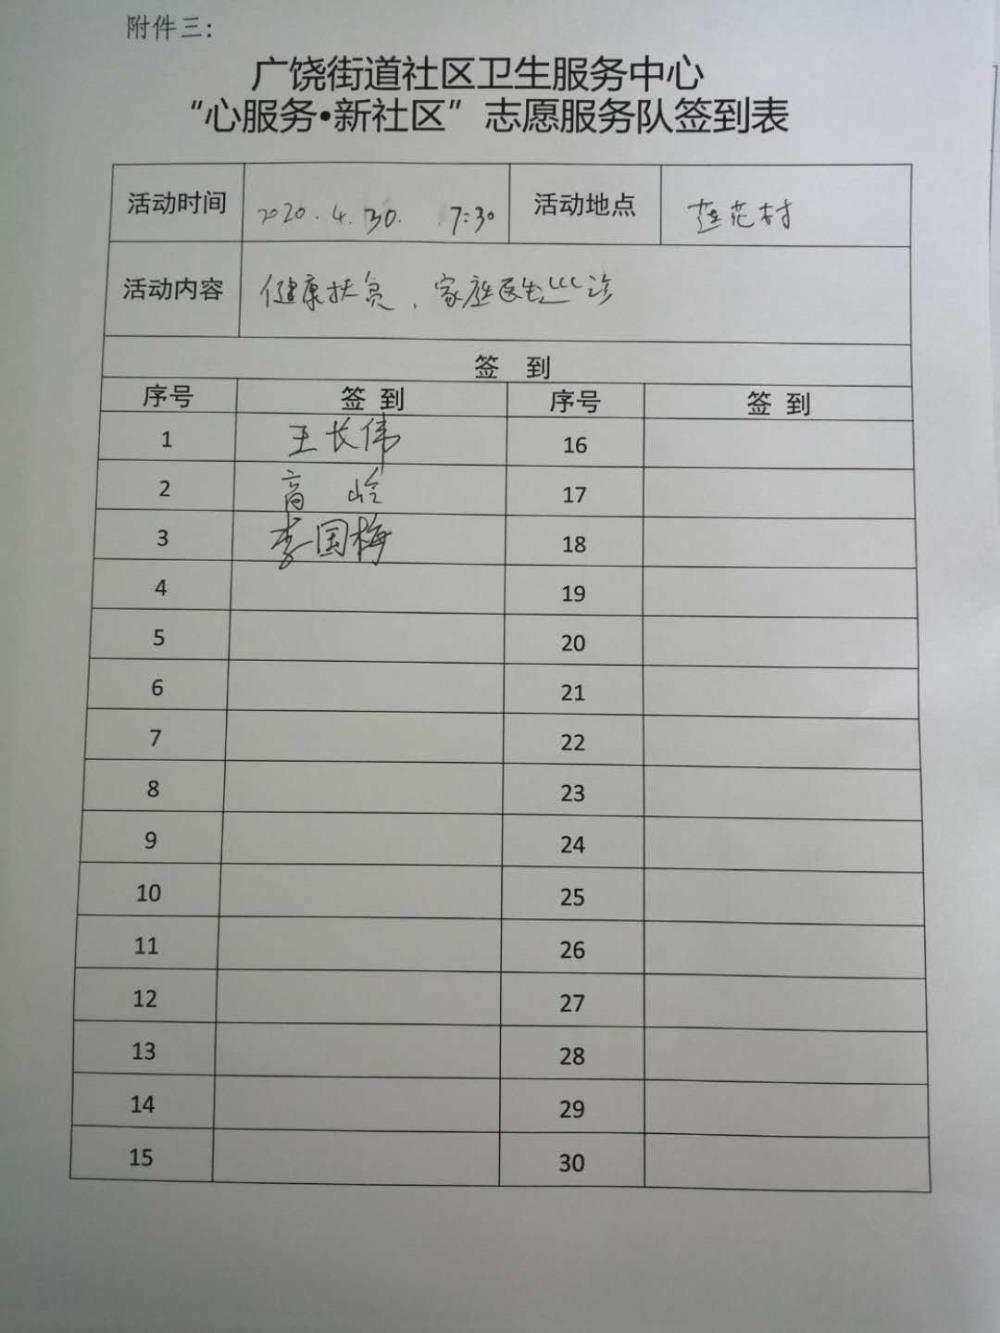 附件三：
广饶街道社区卫生服务中心
“心服务•新社区”志愿服务队签到表
活动时间 2020.4.30. 17:30 活动地点 莲花村
活动内容 健康扶贫、家庭医生巡诊
签 到
序号 签 到 序号 签 到
1 王长伟 16
2 高 岭 17
3 李国梅 18
4 19
5 20
6 21
7 22
8 23
9 24
10 25
11 26
12 27
13 28
14 29
15 30